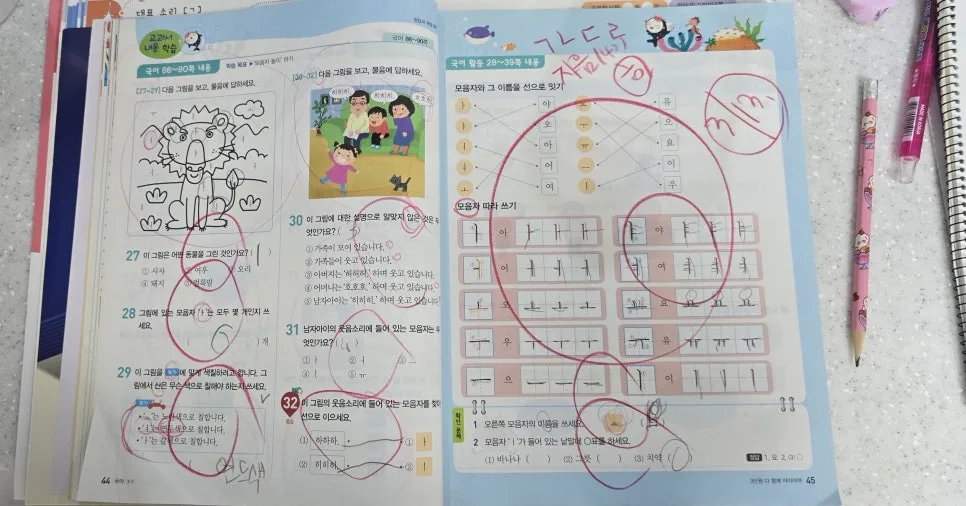 대표 소리 [ㄱ]
교과서
내용 학습
국어 86~90쪽 내용
학습 목표 ▶ '모음자 놀이' 하기
[27~29] 다음 그림을 보고, 물음에 답하세요.
27 이 그림은 어떤 동물을 그린 것인가요? ( 1 )
① 사자 ② 여우 ③ 오리
④ 돼지 ⑤ 얼룩말
28 그림에 있는 모음자 'ㅏ'는 모두 몇 개인지 쓰
세요.
( 6 )개
29 이 그림을 보기 에 맞게 색칠하려고 합니다. 그
림에서 산은 무슨 색으로 칠해야 하는지 쓰세요.
연두색
44 국어 1-1
국어 86~90쪽
[30~32] 다음 그림을 보고, 물음에 답하세요.
하하하
히히히
호호호
30 이 그림에 대한 설명으로 알맞지 않은 것은 무
엇인가요? ( 3 )
① 가족이 모여 있습니다.
② 가족들이 웃고 있습니다.
③ 아버지는 '허허허,' 하며 웃고 있습니다.
④ 어머니는 '호호호,' 하며 웃고 있습니다.
⑤ 남자아이는 '히히히,' 하며 웃고 있습니다.
31 남자아이의 웃음소리에 들어 있는 모음자는 무
엇인가요? ( )
① ㅏ ② ㅓ ③ ㅡ
④ ㅣ ⑤ ㅠ
32 이 그림의 웃음소리에 들어 있는 모음자를 찾아
선으로 이으세요.
(1) 하하하, ① ㅏ
(2) 히히히, ② ㅣ
ㄱㄴㄷㄹ
자음
국어 활동 28~39쪽 내용
3/13.
모음자와 그 이름을 선으로 잇기
ㅏ 야 ㅗ 유
ㅑ 오 ㅜ 으
ㅓ 아 ㅠ 요
ㅕ 어 ㅡ 이
ㅗ 여 ㅣ 우
모음자 따라 쓰기
ㅏ 아 ㅏ ㅏ ㅏ ㅑ 야 ㅑ ㅑ ㅑ
ㅓ 어 ㅓ ㅓ ㅓ ㅕ 여 ㅕ ㅕ ㅕ
ㅗ 오 ㅗ ㅗ ㅗ ㅛ 요 ㅛ ㅛ ㅛ
ㅜ 우 ㅜ ㅜ ㅜ ㅠ 유 ㅠ ㅠ ㅠ
ㅡ 으 ㅡ ㅡ ㅡ ㅣ 이 ㅣ ㅣ ㅣ
확인 문제
1 오른쪽 모음자의 이름을 쓰세요. ㅛ
2 모음자 'ㅣ'가 들어 있는 낱말에 ○표를 하세요.
(1) 바나나 ( ) (2) 그릇 ( ) (3) 치약 ( ○ )
정답 1. 요 2. (3) ○
45